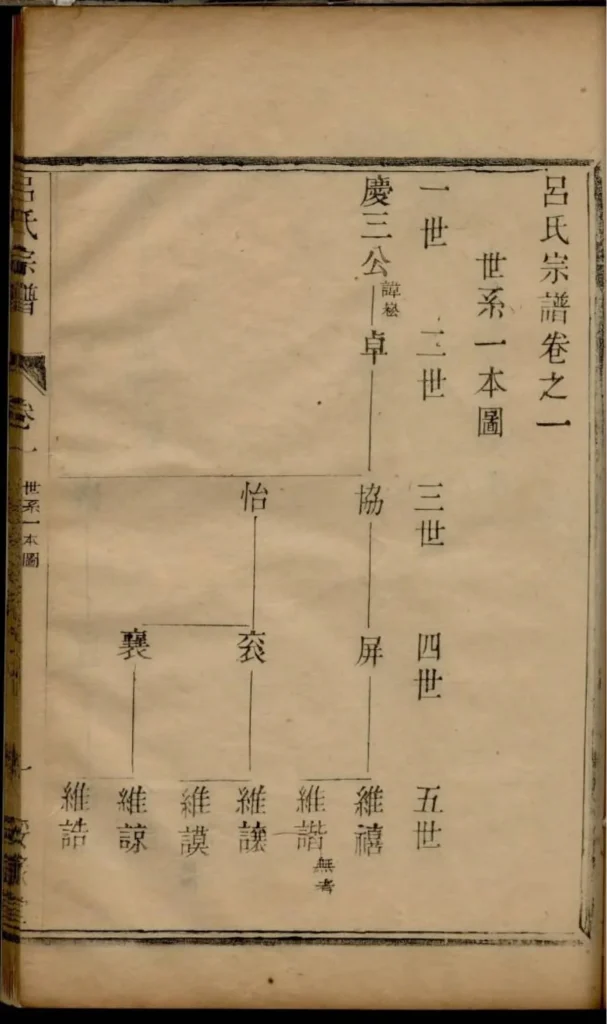 呂氏宗譜卷之一
世系一本圖
一世 二世 三世 四世 五世
慶三公 諱崧 卓 協 屏 維禧
維諧 無考
怡 衮 維讓
維謨
襄 維諒
維誥
呂氏宗譜 卷一 世系一本圖 一